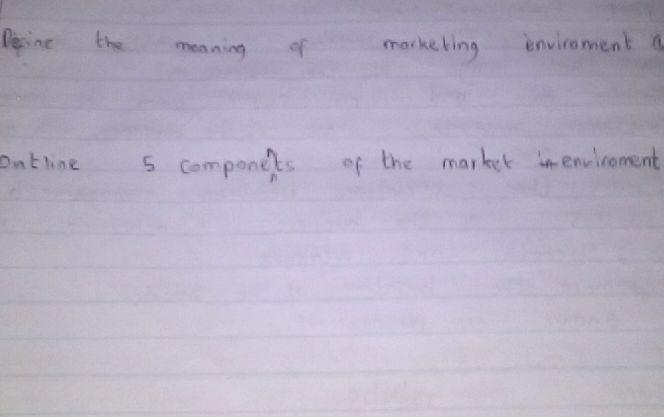 Define the meaning of marketing enviroment a
Outline 5 components of the market enviroment